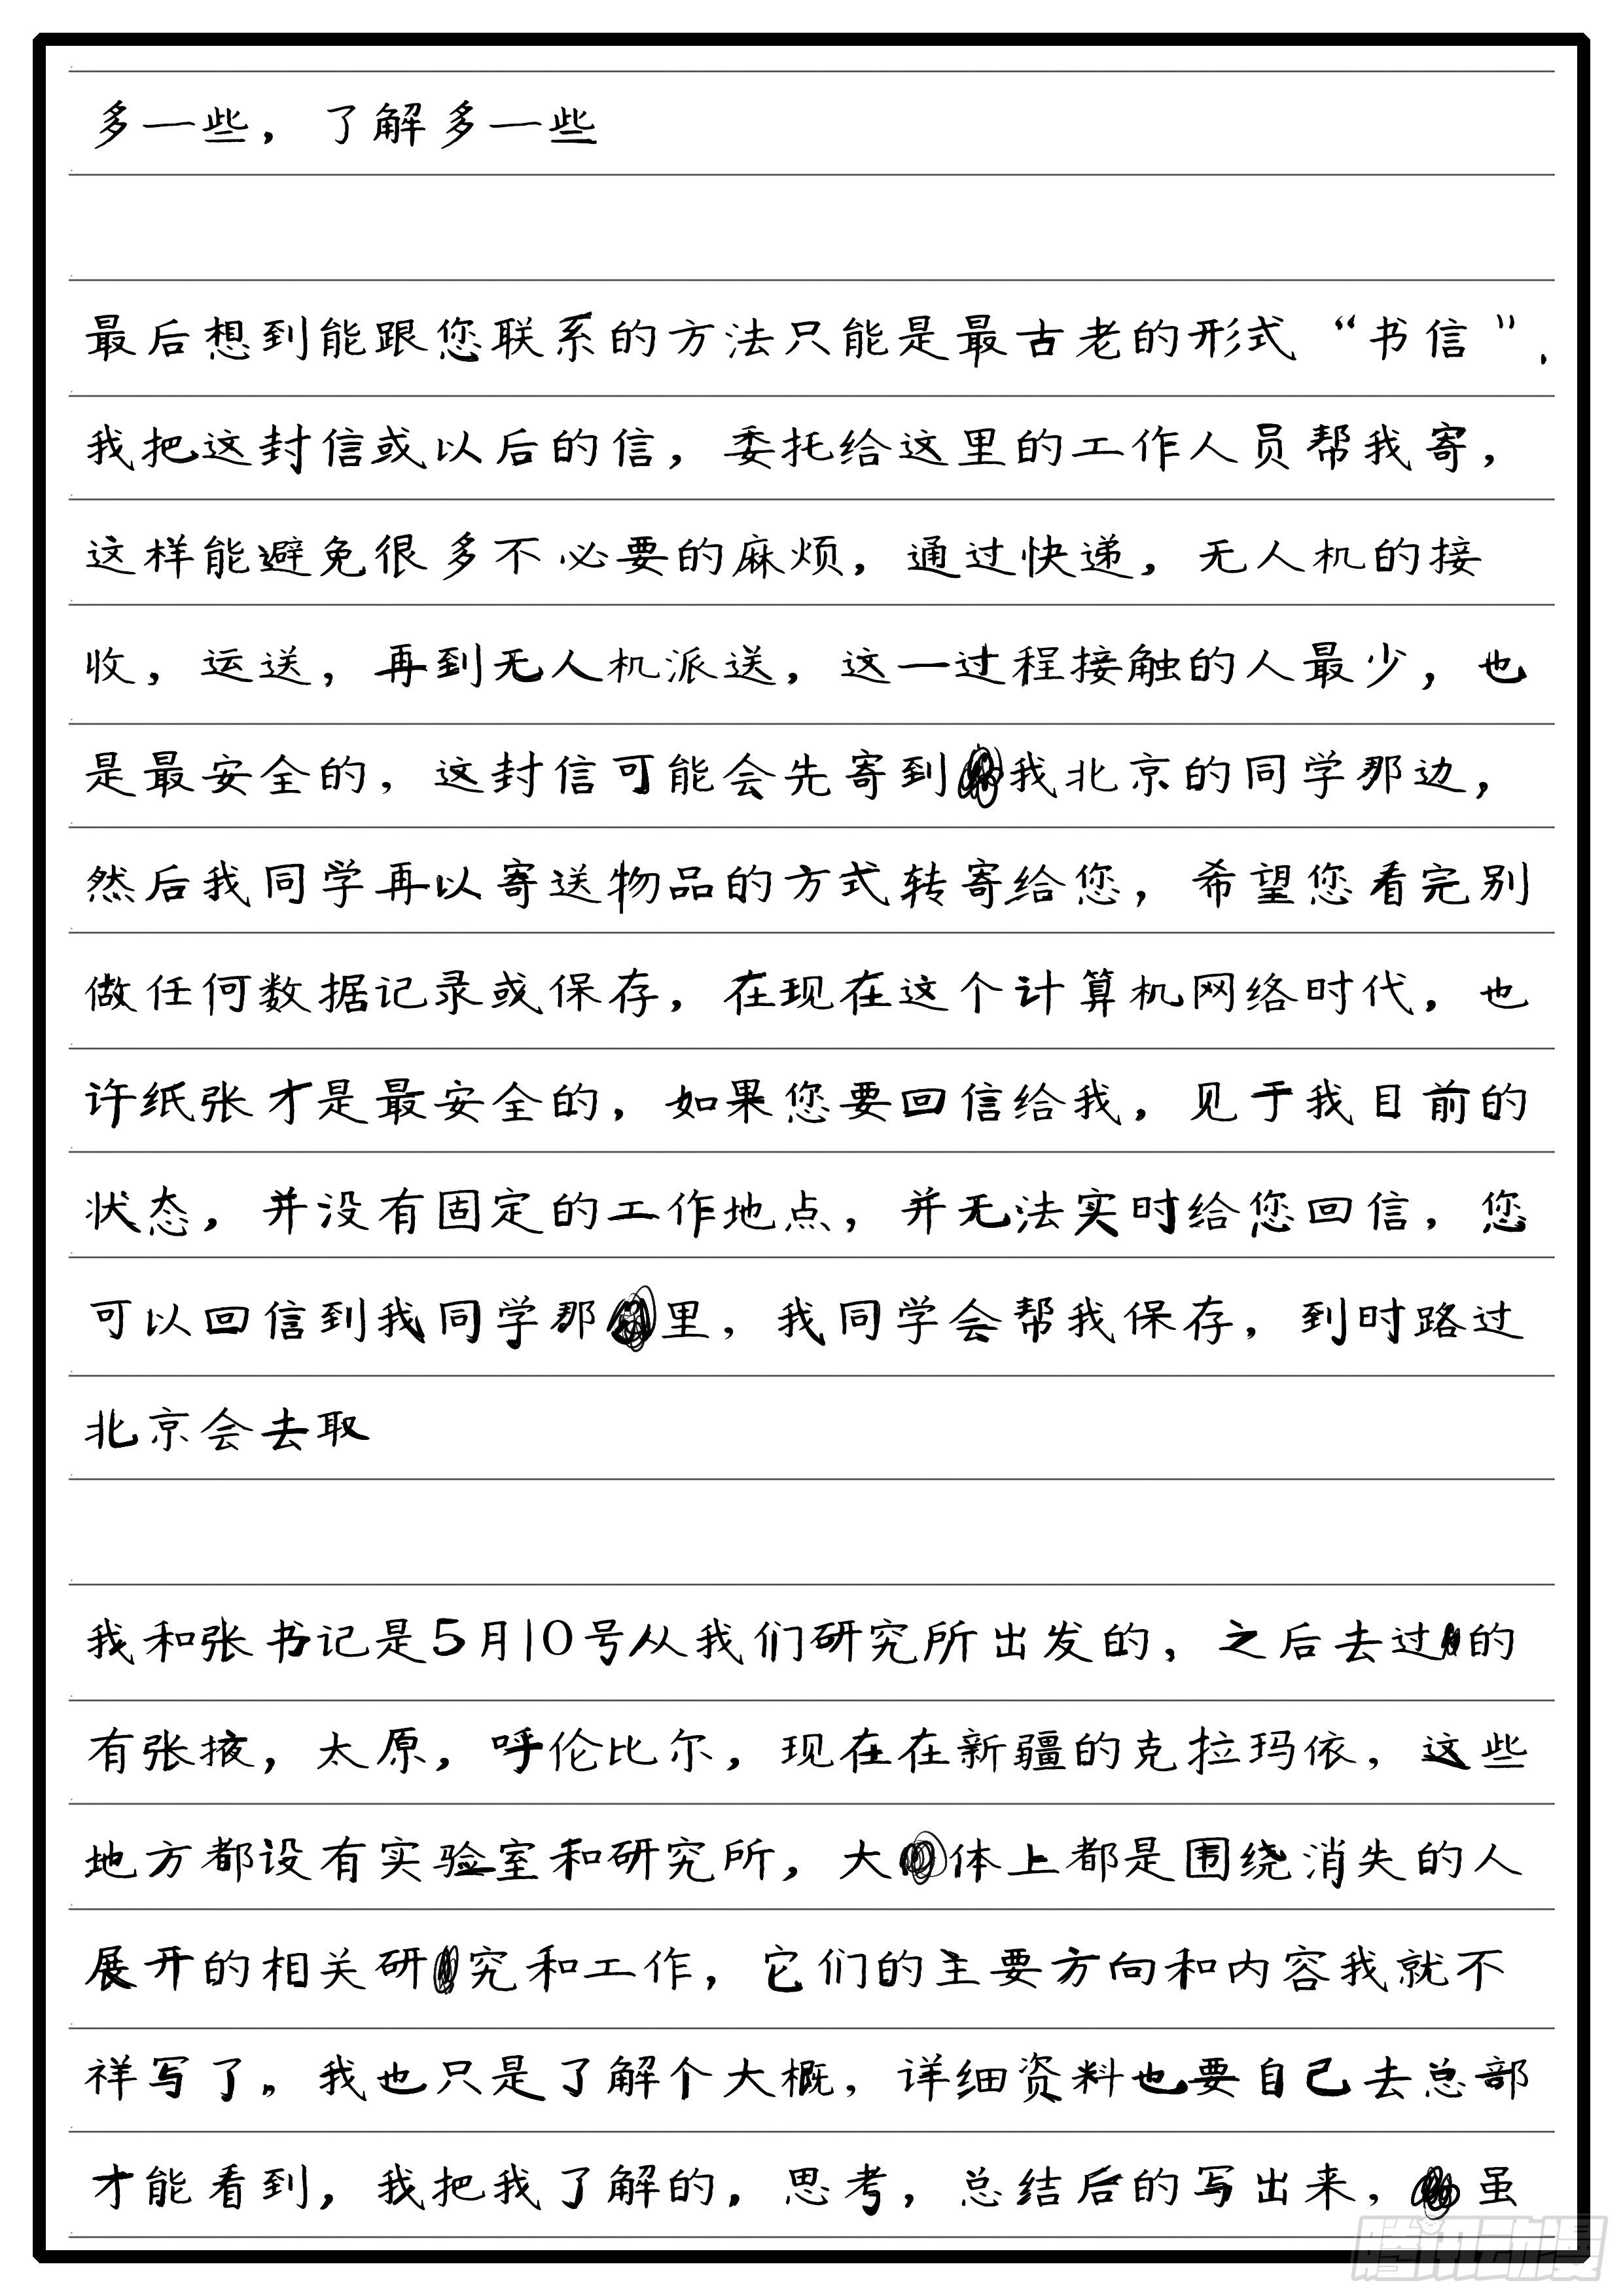 多一些，了解多一些
最后想到能跟您联系的方法只能是最古老的形式“书信”.
我把这封信或以后的信，委托给这里的工作人员帮我寄，
这样能避免很多不必要的麻烦，通过快递，无人机的接
收，运送，再到无人机派送，这一过程接触的人最少，也
是最安全的，这封信可能会先寄到我北京的同学那边，
然后我同学再以寄送物品的方式转寄给您，希望您看完别
做任何数据记录或保存，在现在这个计算机网络时代，也
许纸张才是最安全的，如果您要回信给我，见于我目前的
状态，并没有固定的工作地点，并无法实时给您回信，您
可以回信到我同学那里，我同学会帮我保存，到时路过
北京会去取
我和张书记是5月10号从我们研究所出发的，之后去过的
有张掖，太原，呼伦比尔，现在在新疆的克拉玛依，这些
地方都设有实验室和研究所，大体上都是围绕消失的人
展开的相关研究和工作，它们的主要方向和内容我就不
祥写了，我也只是了解个大概，详细资料也要自己去总部
才能看到，我把我了解的，思考，总结后的写出来，虽
腾讯动漫